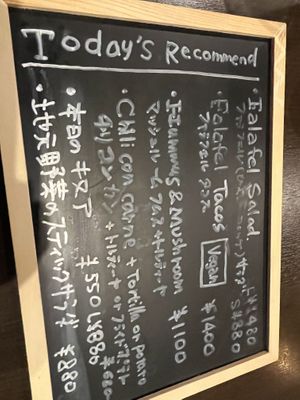 Today's Recommend
・Falafel Salad L¥1480
S¥880
・Falafel Tacos Vegan ¥1400
ファラフェル タコス
・Hummus & Mushroom ¥1100
マッシュルーム フムス+トルティーヤ
・Chili con carne + Tortilla or potato
チリコンカン + トルティーヤ or フライドポテト
・本日のキヌア ¥550
・地元野菜のスティックサラダ ¥880